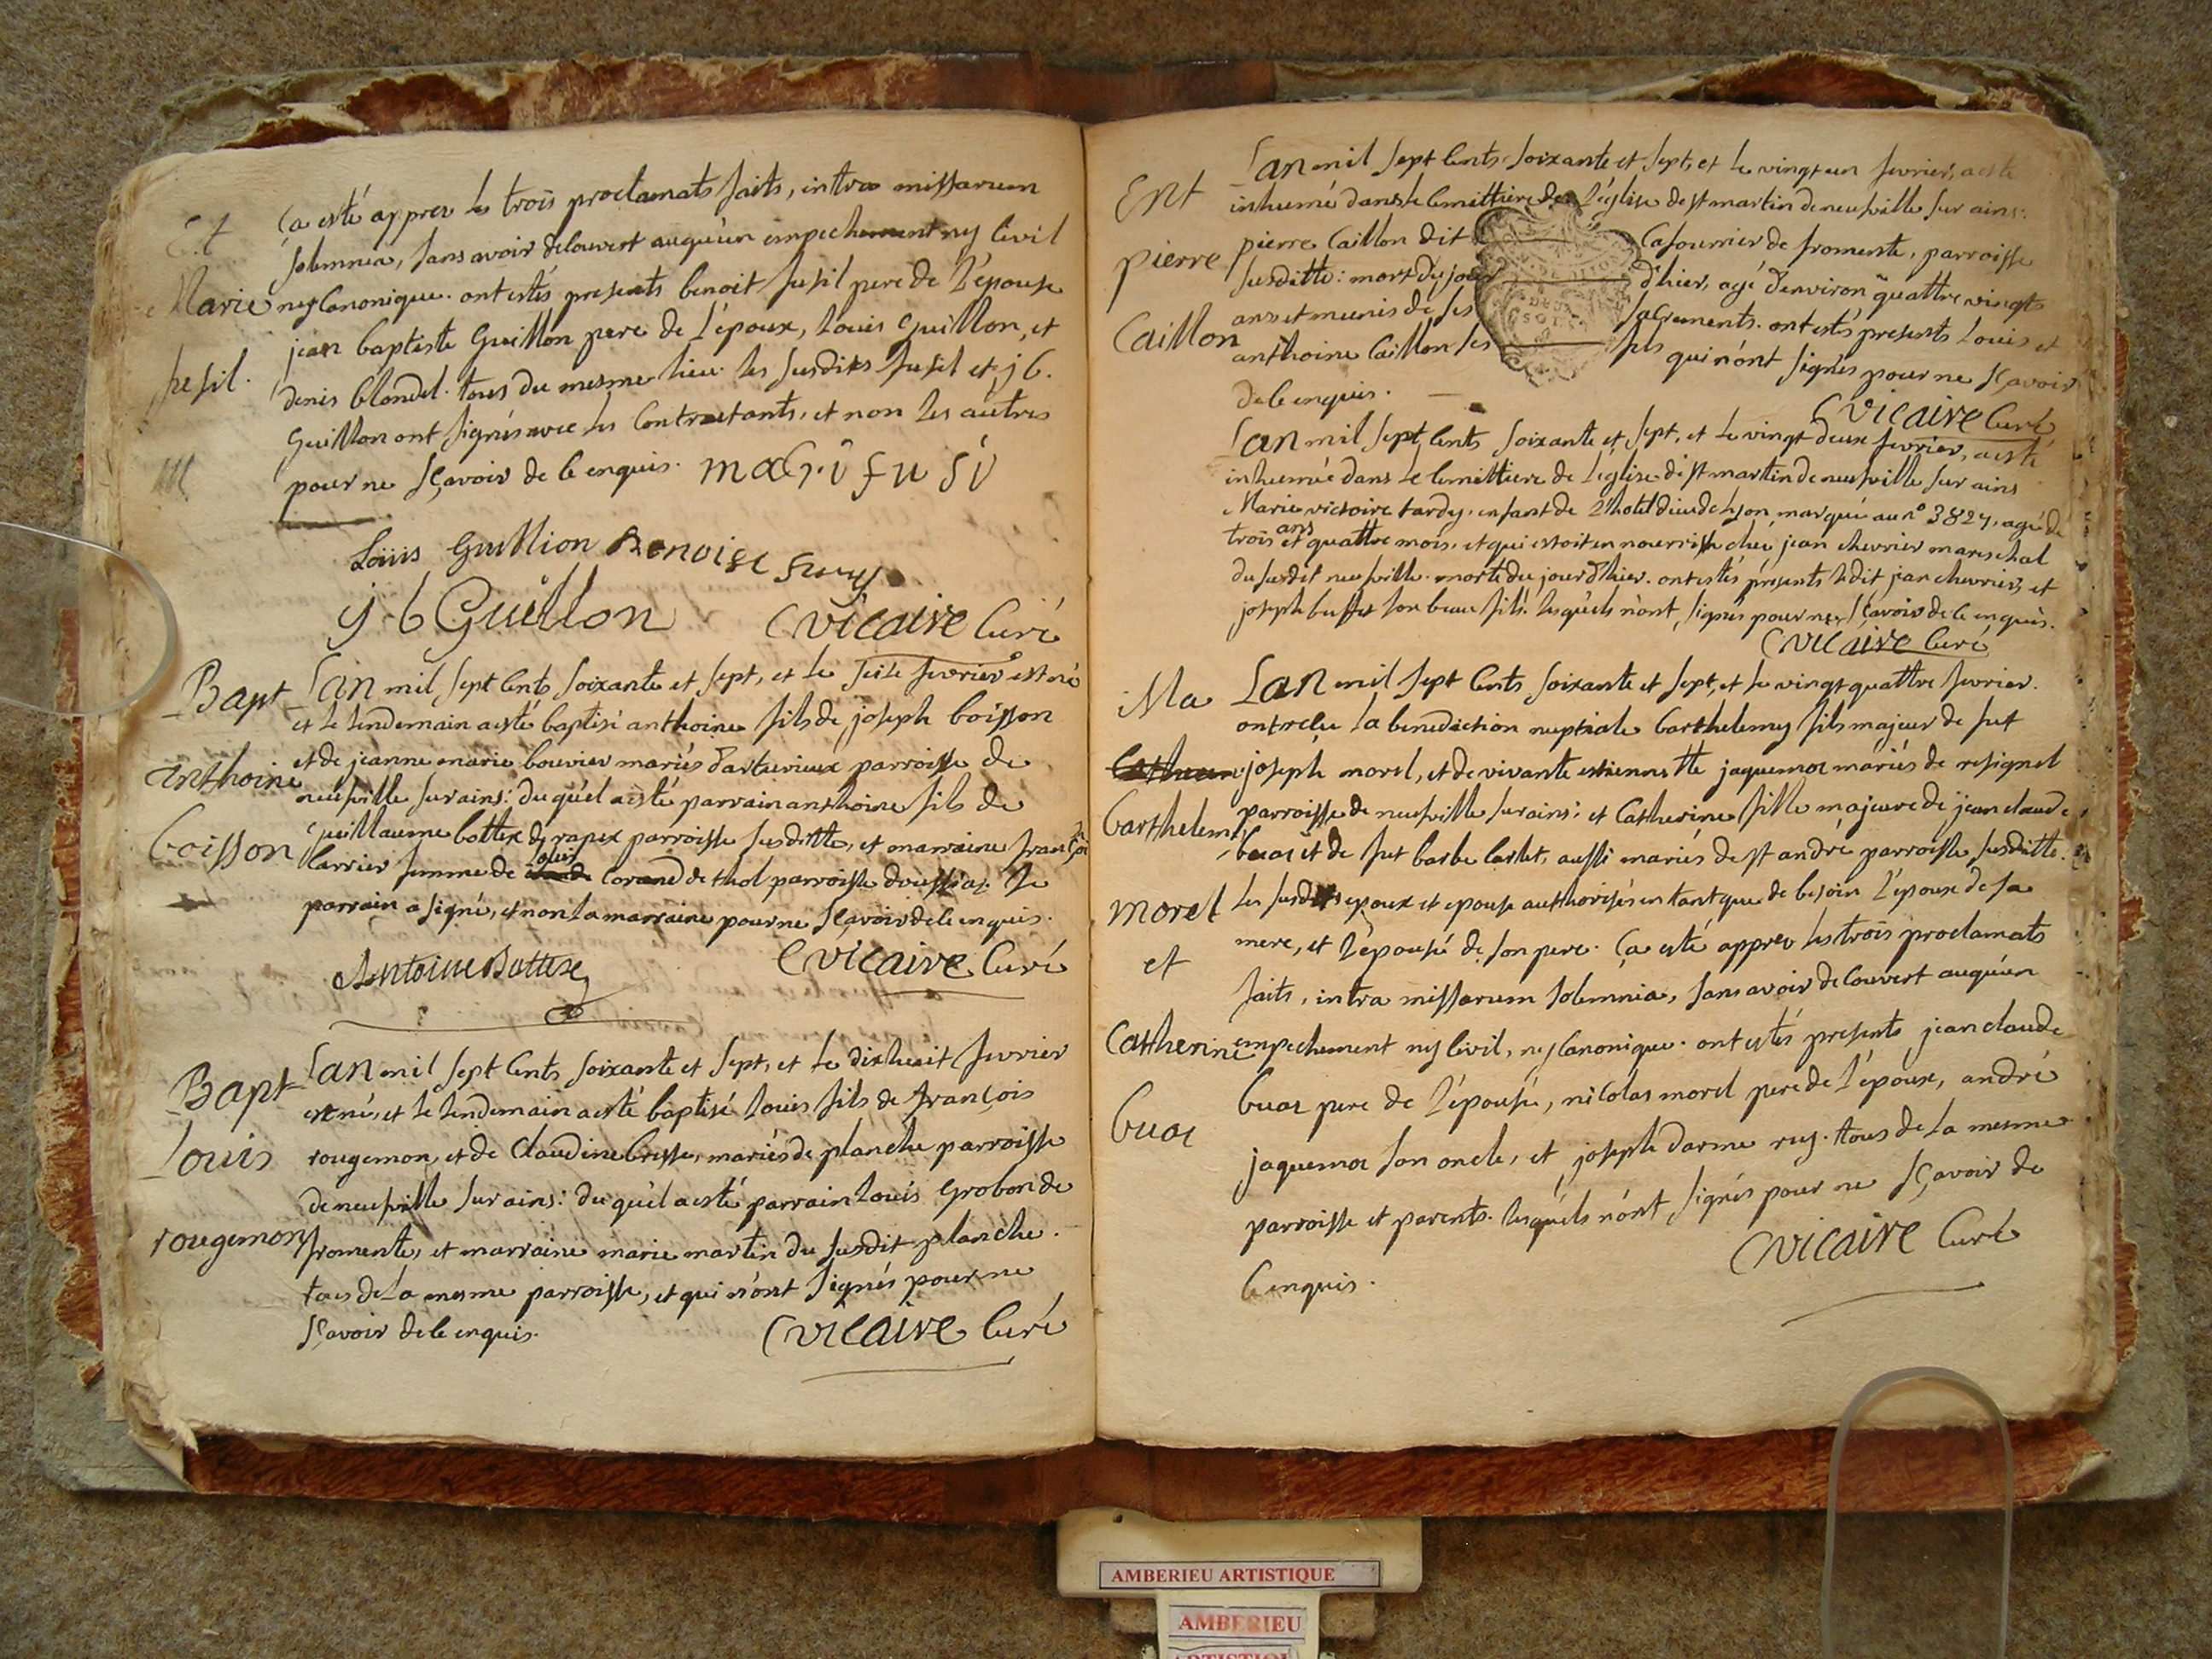 Et
Marie
fusil.
ça esté apprez les trois proclamats faits, intra missarum
solemnia, sans avoir decouvert auqu'un empechement ny civil
ny canonique. ont estés presents benoit fusil pere de l'épouse
jean baptiste Guillon pere de l'époux, Louis Guillon, et
denis blondel. tous du mesme lieu. les susdits fusil et j b.
Guillon ont signés avec les contractants, et non les autres
pour ne sçavoir de ce enquis. mari fusi
Loüis Guillion Benoist
j b Guillon Cvicaire Curé
Bapt
anthoine
boisson
Lan mil sept cents soixante et sept, et le seize fevrier est né
et le lendemain a esté baptisé anthoine fils de joseph boisson
et de jeanne marie bouvier mariés d'arturieux parroisse de
neufville sur ains: duquel a esté parrain anthoine fils de
guillaume bottex de rapex parroisse susditte, et marraine françoise
Carrier femme de corand de thol parroisse le
parrain a signé, et non la marraine pour ne sçavoir de ce enquis.
Antoine Bottex Cvicaire Curé
Bapt
Louis
rougemon
Lan mil sept cents soixante et sept, et le dixhuit fevrier
est né, et le lendemain a esté baptisé Louis fils de françois
rougemon, et de Claudine bresse, mariés de planche parroisse
de neufville sur ains: duquel a esté parrain Louis Grobon de
fromente, et marraine marie martin du susdit planche.
tous de la mesme parroisse, et qui n'ont signés pour ne
sçavoir de ce enquis. Cvicaire Curé
Ent
pierre
Caillon
Lan mil sept cents soixante et sept, et le vingt un fevrier, a esté
inhumé dans le cimettiere de l'église de st martin de neufville sur ains:
pierre Caillon dit Cafournier de fromente, parroisse
susditte: mort du jour d'hier, agé d'environ quattre vingts
ans et munis de ses sacrements. ont estés presents Louis et
anthoine Caillon ses fils qui n'ont signés pour ne sçavoir
de ce enquis. Cvicaire Curé
Lan mil sept cents soixante et sept, et le vingt deux fevrier, a esté
inhumée dans le cimettiere de l'église de st martin de neufville sur ains
Marie victoire tardy, enfant de l'hotel dieu de Lyon marqué au n° 3824, agé de
trois ans et quattre mois, et qui estoit en nourrisse chés jean chevrier mareschal
du susdit neufville. morte du jour d'hier. ont estés présents ledit jean chevrier, et
joseph buffet son beau fils. lesquels n'ont signés pour ne sçavoir de ce enquis.
Cvicaire Curé
Ma
barthelemi
morel
et
Catherine
buat
Lan mil sept cents soixante et sept, et le vingt quattre fevrier.
ont reçu la benediction nuptiale barthelemy fils majeur de fut
joseph morel, et de vivante estiennette jaquemot mariés de resignel
parroisse de neufville sur ains: et Catherine fille majeure de jean claude
buat et de fut barbe carlet, aussi mariés de st andré parroisse susditte.
les susdits epoux et epouse authorisés en tant que de besoin l'époux de sa
mere, et l'épouse de son pere. ça esté apprez les trois proclamats
faits, intra missarum solemnia, sans avoir decouvert auqu'un
empechement ny civil, ny canonique. ont estés presents jean claude
buat pere de l'épouse, nicolas morel pere de l'époux, andré
jaquemot son oncle, et joseph darme rey. tous de la mesme
parroisse et parents. lesquels n'ont signés pour ne sçavoir de
ce enquis. Cvicaire Curé
AMBERIEU ARTISTIQUE
AMBERIEU